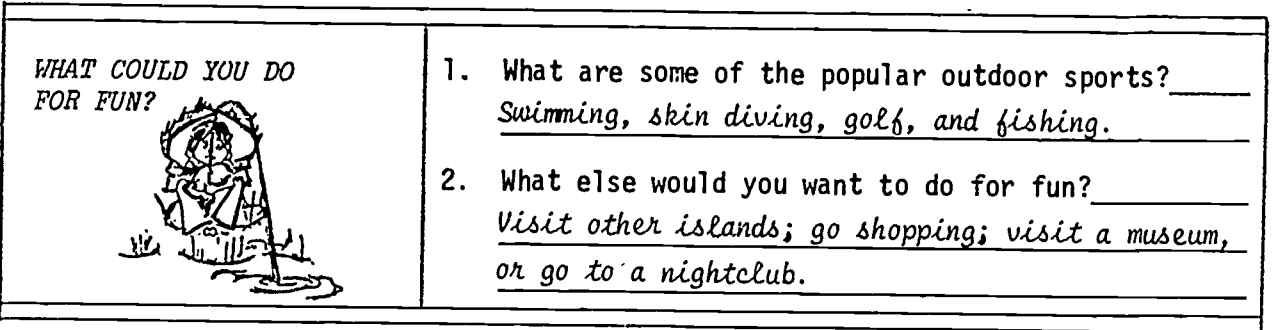 WHAT COULD YOU DO
FOR FUN?
1. What are some of the popular outdoor sports?
Swimming, skin diving, golf, and fishing.
2. What else would you want to do for fun?
Visit other islands; go shopping; visit a museum,
or go to a nightclub.